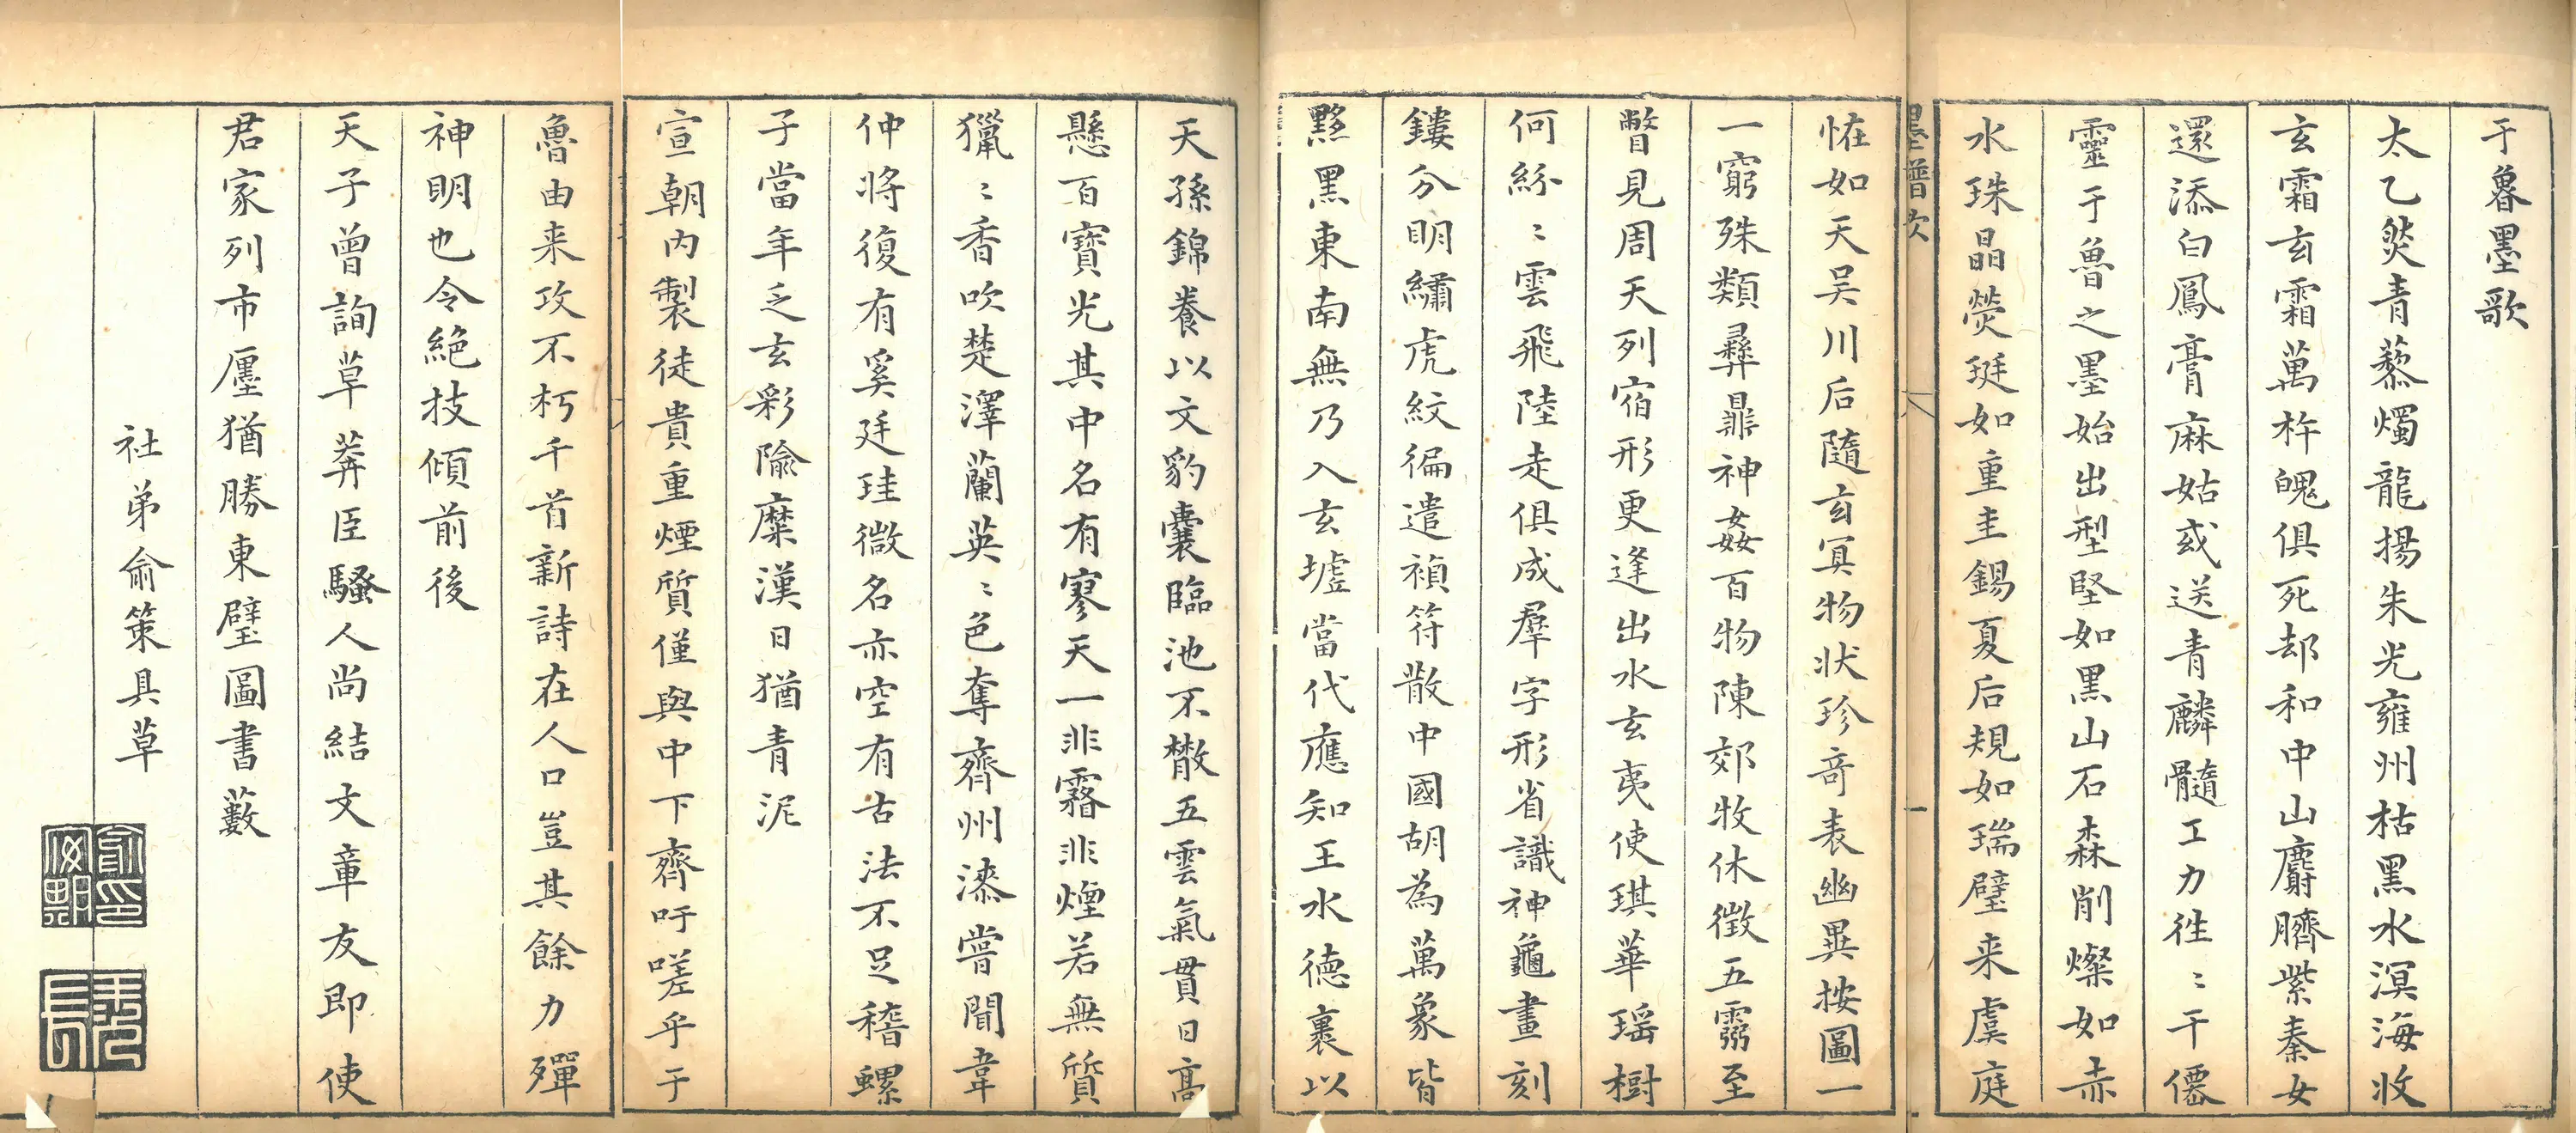 于魯墨歌
太乙燄青藜燭龍揚朱光雍州枯黑水溟海收
玄霜玄霜萬杵魄俱死却和中山麝臍紫秦女
還添白鳳膏麻姑或送青麟髓工力徃〻干僊
靈于魯之墨始出型堅如黑山石森削燦如赤
水珠晶熒珽如重圭錫夏后規如瑞璧来虞庭
墨譜次
六
一
恠如天吴川后隨玄冥物状珍奇表幽異按圖一
一窮殊類彛鼎神姦百物陳郊牧休徵五靈至
瞥見周天列宿形更逢出水玄夷使琪華瑶樹
何紛〻雲飛陸走俱成羣字形省識神龜畫刻
鏤分明繡虎紋徧遣禎符散中國胡為萬象皆
黟黑東南無乃入玄墟當代應知王水德裹以
天孫錦養以文豹囊臨池不散五雲氣貫日高
懸百寶光其中名有寥天一非霧非煙若無質
獵〻香吹楚澤蘭英〻色奪齊州漆嘗聞韋
仲將復有奚廷珪微名亦空有古法不足稽螺
子當年乏玄彩隃麋漢日猶青泥
宣朝内製徒貴重煙質僅與中下齊吁嗟乎于
魯由来攻不朽千首新詩在人口豈其餘力殫
神明也令絕技傾前後
天子曾詢草莽臣騷人尚結文章友即使
君家列市廛猶勝東璧圖書藪
社弟俞策具草
俞策印